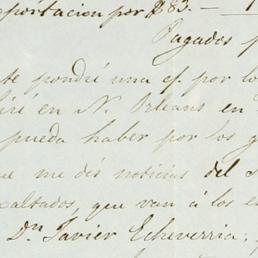 portacion por $83.—
Pagados
te pondré una cf. por lo
iré en N. Orleans en
pueda haber por los g
ue me dés noticias del
xaltados, que van á los es
Dn. Javier Echeverria;